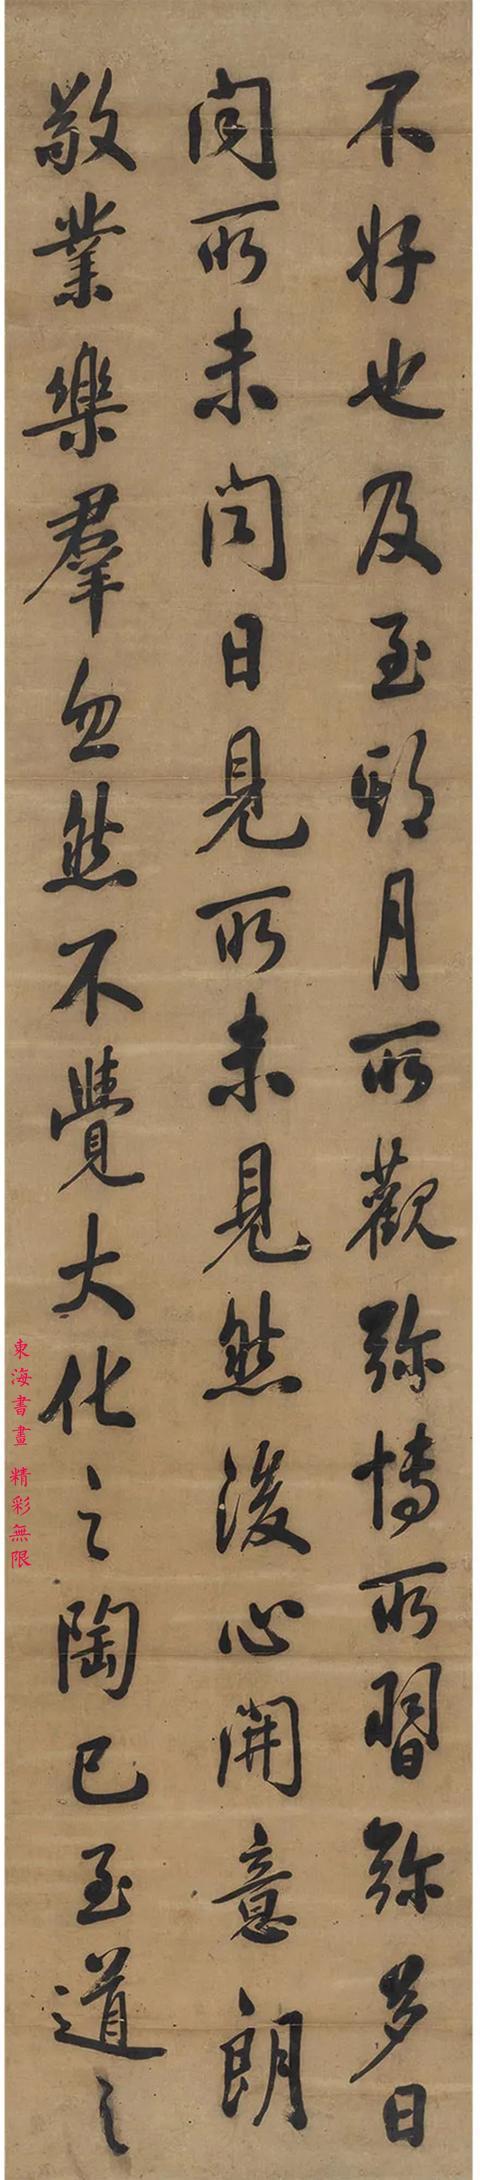 不好也及至期月所觀弥博所習弥多日
聞所未聞日見所未見然後心開意朗
敬業樂群忽然不覺大化之陶已至道之
東海書畫 精彩無限